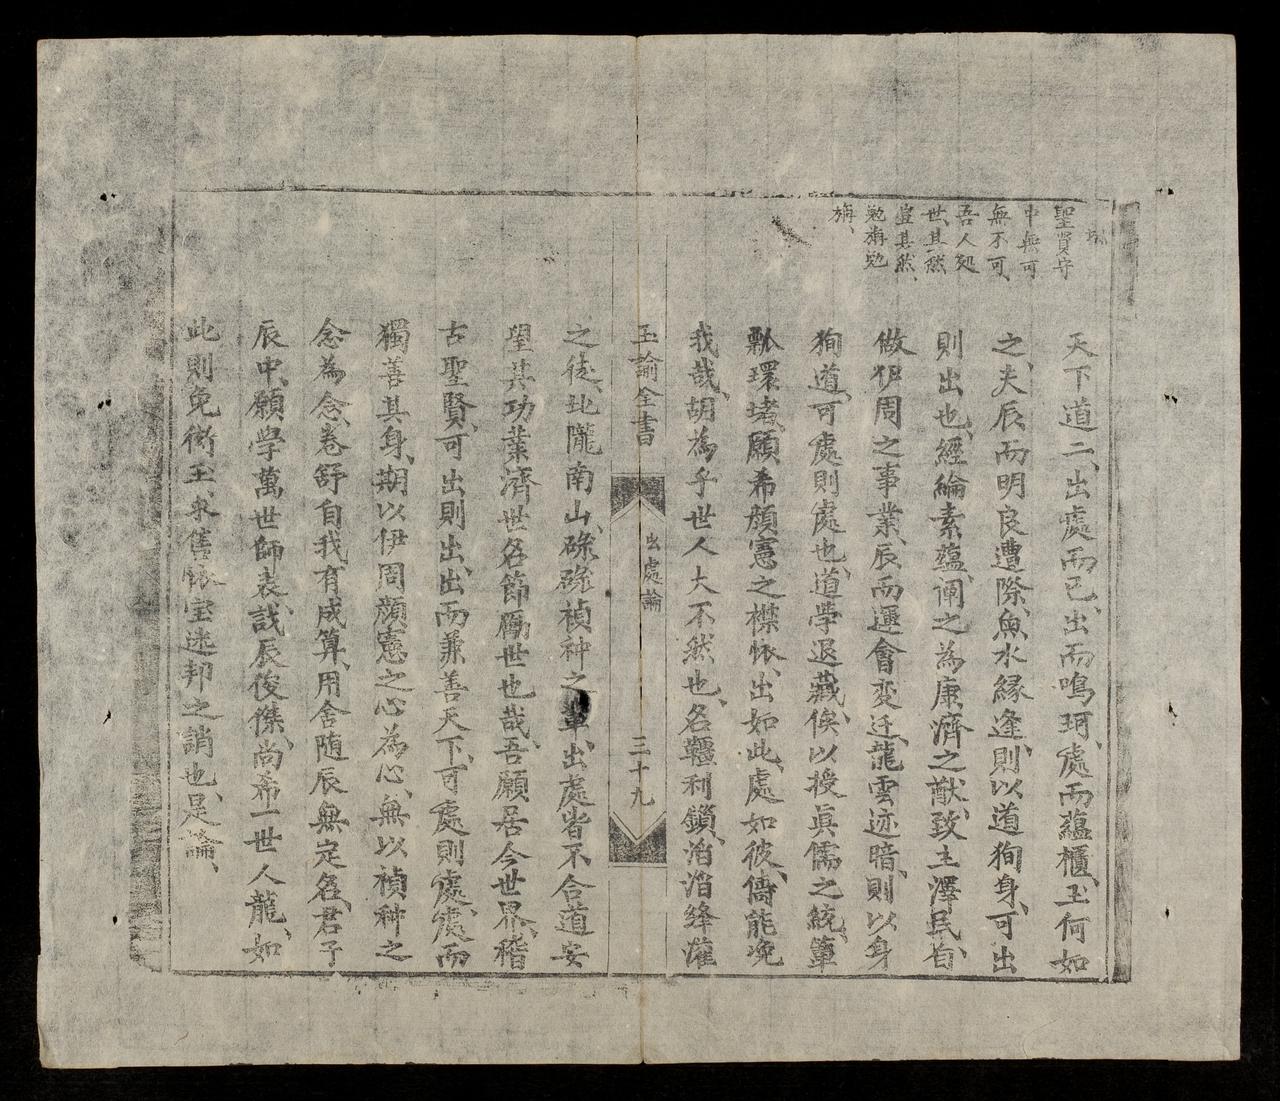 聖賢守
中無可
無不可、
吾人処
世、其然
豈其然、
勉旃勉
旃、
天下道二、出處而已、出而鳴珂、處而蘊櫃、玉何如
之、夫辰而明良遭際、魚水緣逢、則以道狥身、可出
則出也、經綸素蘊、闡之為康濟之猷、致主澤民、自
做伊周之事業、辰而運會変迁、龍雲迹暗、則以身
狥道、可處則處也、道学退藏、俟以授眞儒之統、簞
瓢環堵、願希顏憲之襟懷、出如此、處如彼、儔能浼
我哉、胡為乎世人大不然也、名韁利鎖、滔滔絳灌
玉諭全書
出處論
三十九
之徒、北隴南山、碌碌禎种之輩、出處皆不合道、安
望其功業濟世、名節勵世也哉、吾願居今世界、稽
古聖賢、可出則出、出而兼善天下、可處則處、處而
獨善其身、期以伊周顏憲之心為心、無以禎种之
念為念、卷舒自我有成算、用舍随辰無定名、君子
辰中、願学萬世師表、識辰俊傑、尚希一世人龍、如
此則免衒玉求售、懷宝迷邦之誚也、是論、